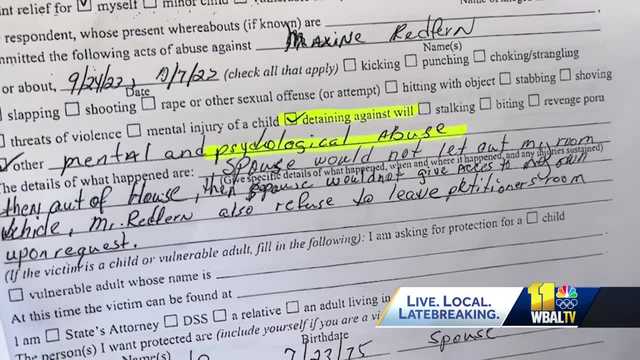 nt relief for ☑ myself ☐ minor child
respondent, whose present whereabouts (if known) are
mmitted the following acts of abuse against Maxine Redfern
Name(s)
or about, 9/24/22, 10/7/22 (check all that apply) ☐ kicking ☐ punching ☐ choking/strangling
Date
slapping ☐ shooting ☐ rape or other sexual offense (or attempt) ☐ hitting with object ☐ stabbing ☐ shoving
threats of violence ☐ mental injury of a child ☑ detaining against will ☐ stalking ☐ biting ☐ revenge porn
other mental and psychological Abuse
The details of what happened are: Spouse would not let out my room
(Give specific details of what happened, when and where it happened, and any injuries sustained)
then out of House, then spouse would not give access to my own
vehicle, Mr. Redfern also refuse to leave petitioners room
upon request.
(If the victim is a child or vulnerable adult, fill in the following): I am asking for protection for a ☐ child
☐ vulnerable adult whose name is
At this time the victim can be found at
I am ☐ State's Attorney ☐ DSS ☐ a relative ☐ an adult living in
The person(s) I want protected are (include yourself if you are a vi
Name(s)
Birthdate
7/23/75 Spouse
LIVE. LOCAL.
LATEBREAKING.
11
WBALTV